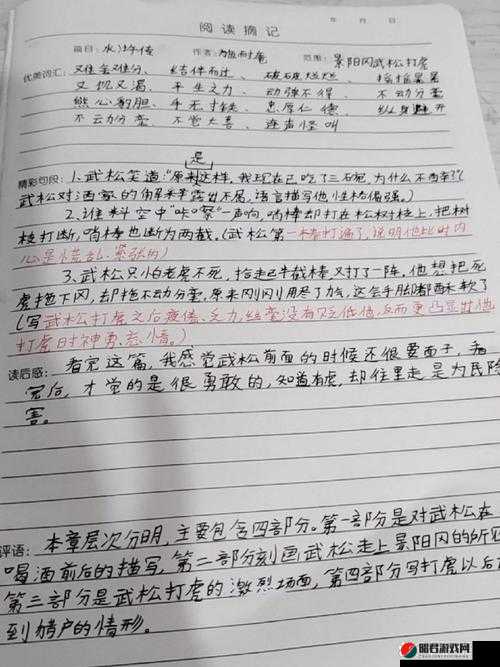 阅读摘记
年 月 日
题目：水浒传 作者：施耐庵 范围：景阳冈武松打虎
优美词汇：难舍难分、结伴而过、破破烂烂、摇摇晃晃
又饥又渴、平生之力、动弹不得、不动分毫
熊心豹胆、手无寸铁、忠厚仁德、纵身避开
不云力分毫、不觉大喜、连声怪叫
是
精彩句段：1.武松笑道"原来这样。我现在已吃了三碗，为什么不再卖？"(
武松对酒家的解释露出不屑，语言描写他性格倔强。)
2.谁料空中"咔嚓"一声响，哨棒却打在松树枝上，把树
枝打断，哨棒也断为两截。(武松第一棒打漏了，说明他此时内
心是慌乱、紧张的)
3.武松只怕老虎不死，拾起半截棒又打了一阵。他想把死
虎拖下冈，却拖不动分毫，原来刚刚用尽了力气，这会手脚都酥软了
(写武松打虎之后疲倦、乏力，丝毫没有贬低他，反而更凸显出他
打虎时神勇忘情。)
读后感：看完这篇，我感觉武松前面的时候还很要面子，看
完后，才觉的是很勇敢的，知道有虎，却往里走是为民除
害。
评语：本章层次分明，主要包含四部分。第一部分是对武松在
喝酒前后的描写，第二部分刻画武松走上景阳冈的所
第三部分是武松打虎的激烈场面，第四部分写打虎以后
到猎户的情形。
昭君游戏网